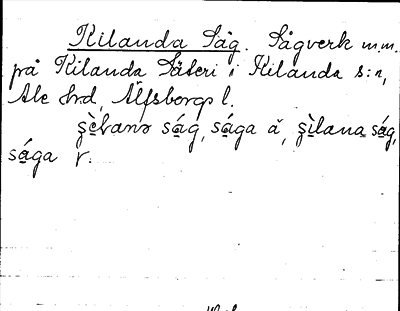 Kilanda Såg. Sågverk m.m.
på Kilanda Säteri i Kilanda s:n,
Ale hrd, Älfsborgs l.
såg, såga ä, såg,
såga r.